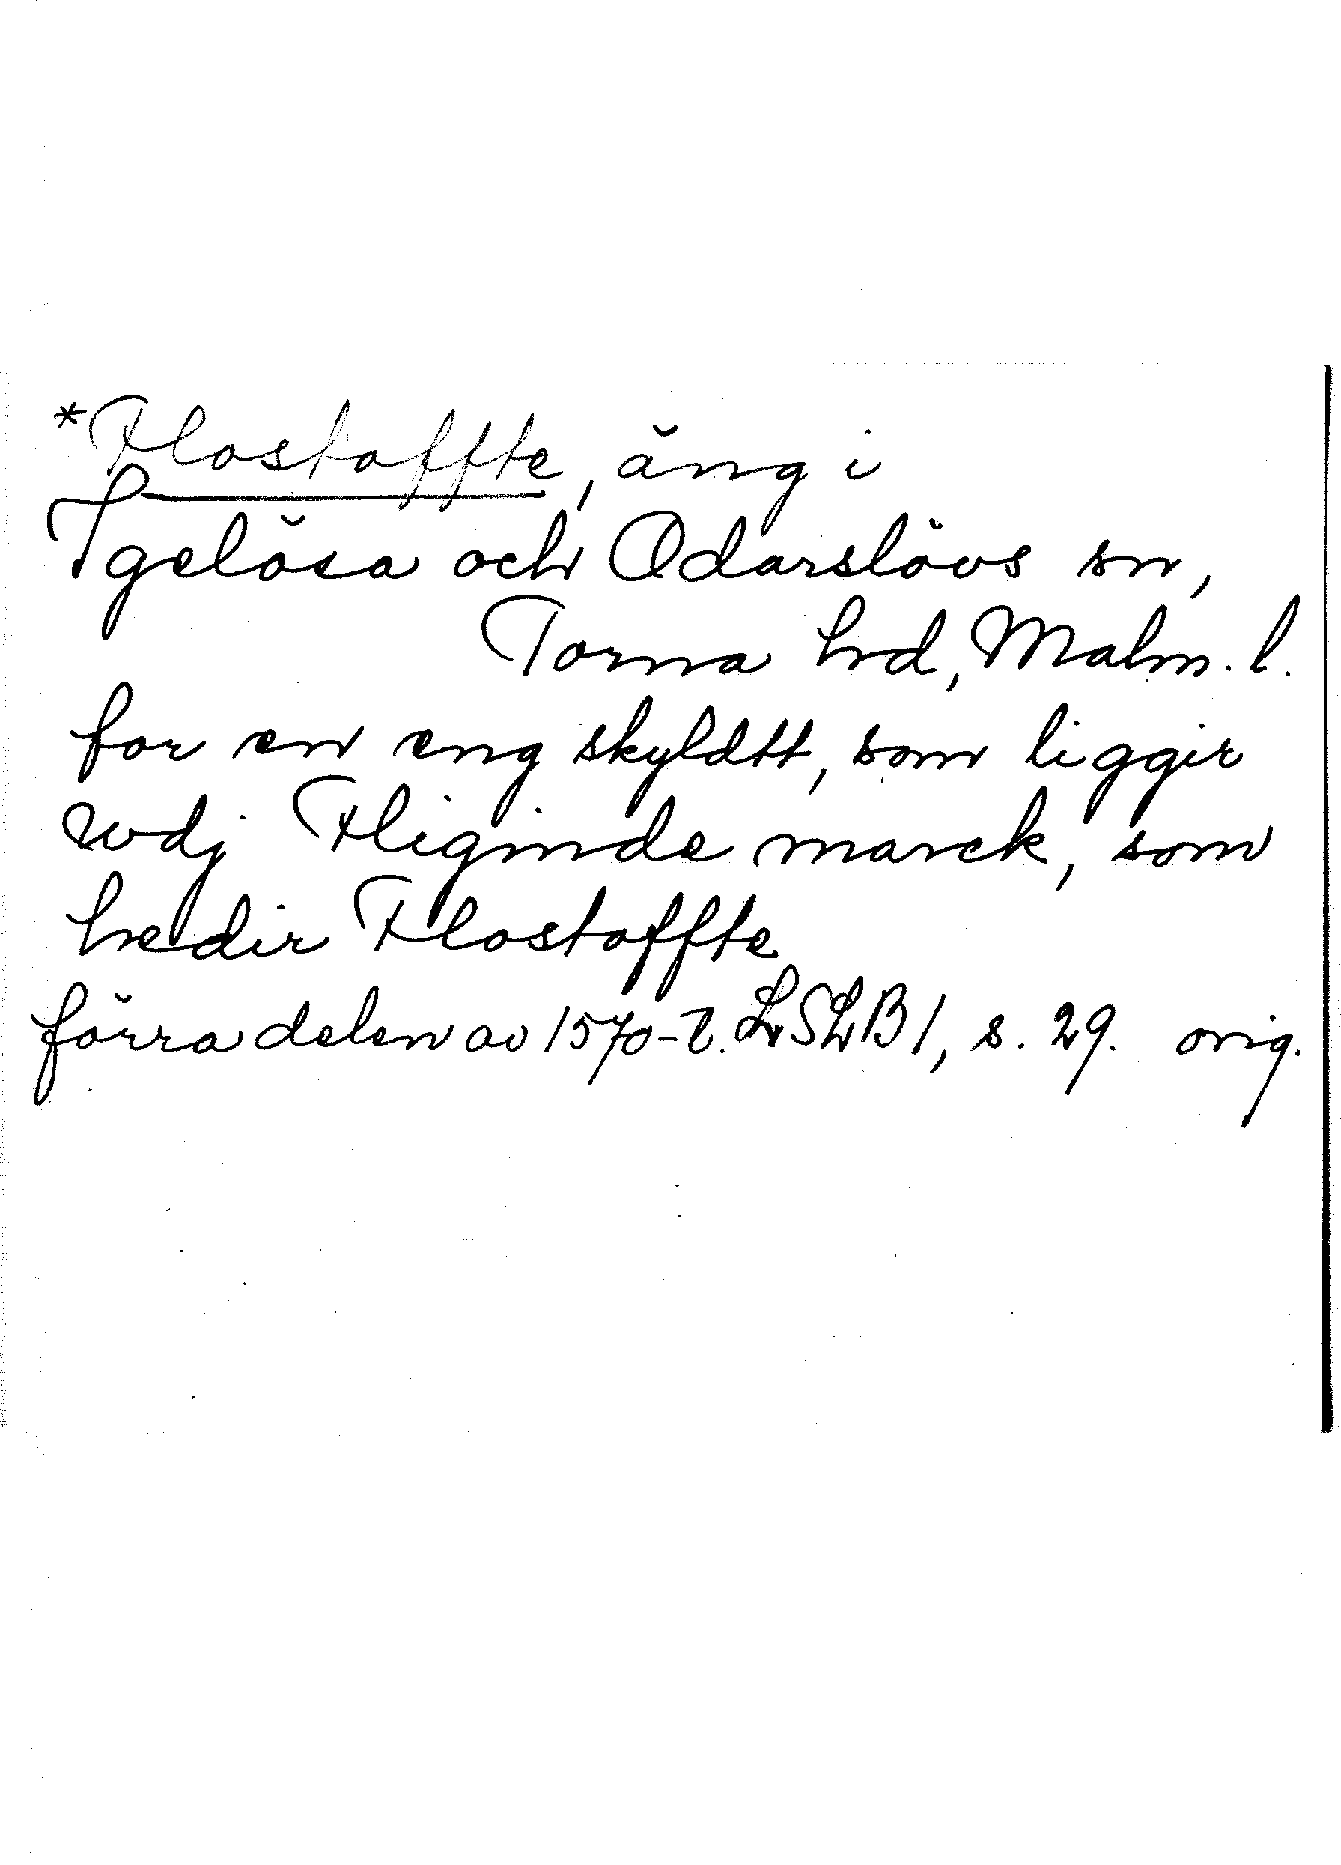 *Flostoffte, äng i
Igelösa och Odarslövs sn,
Torna hd, Malm. l.
for en eng skyldtt, som liggir
wdj Fliginde marck, som
hedir Flostoffte
förra delen av 1570-t. LSLB 1, s. 29. orig.